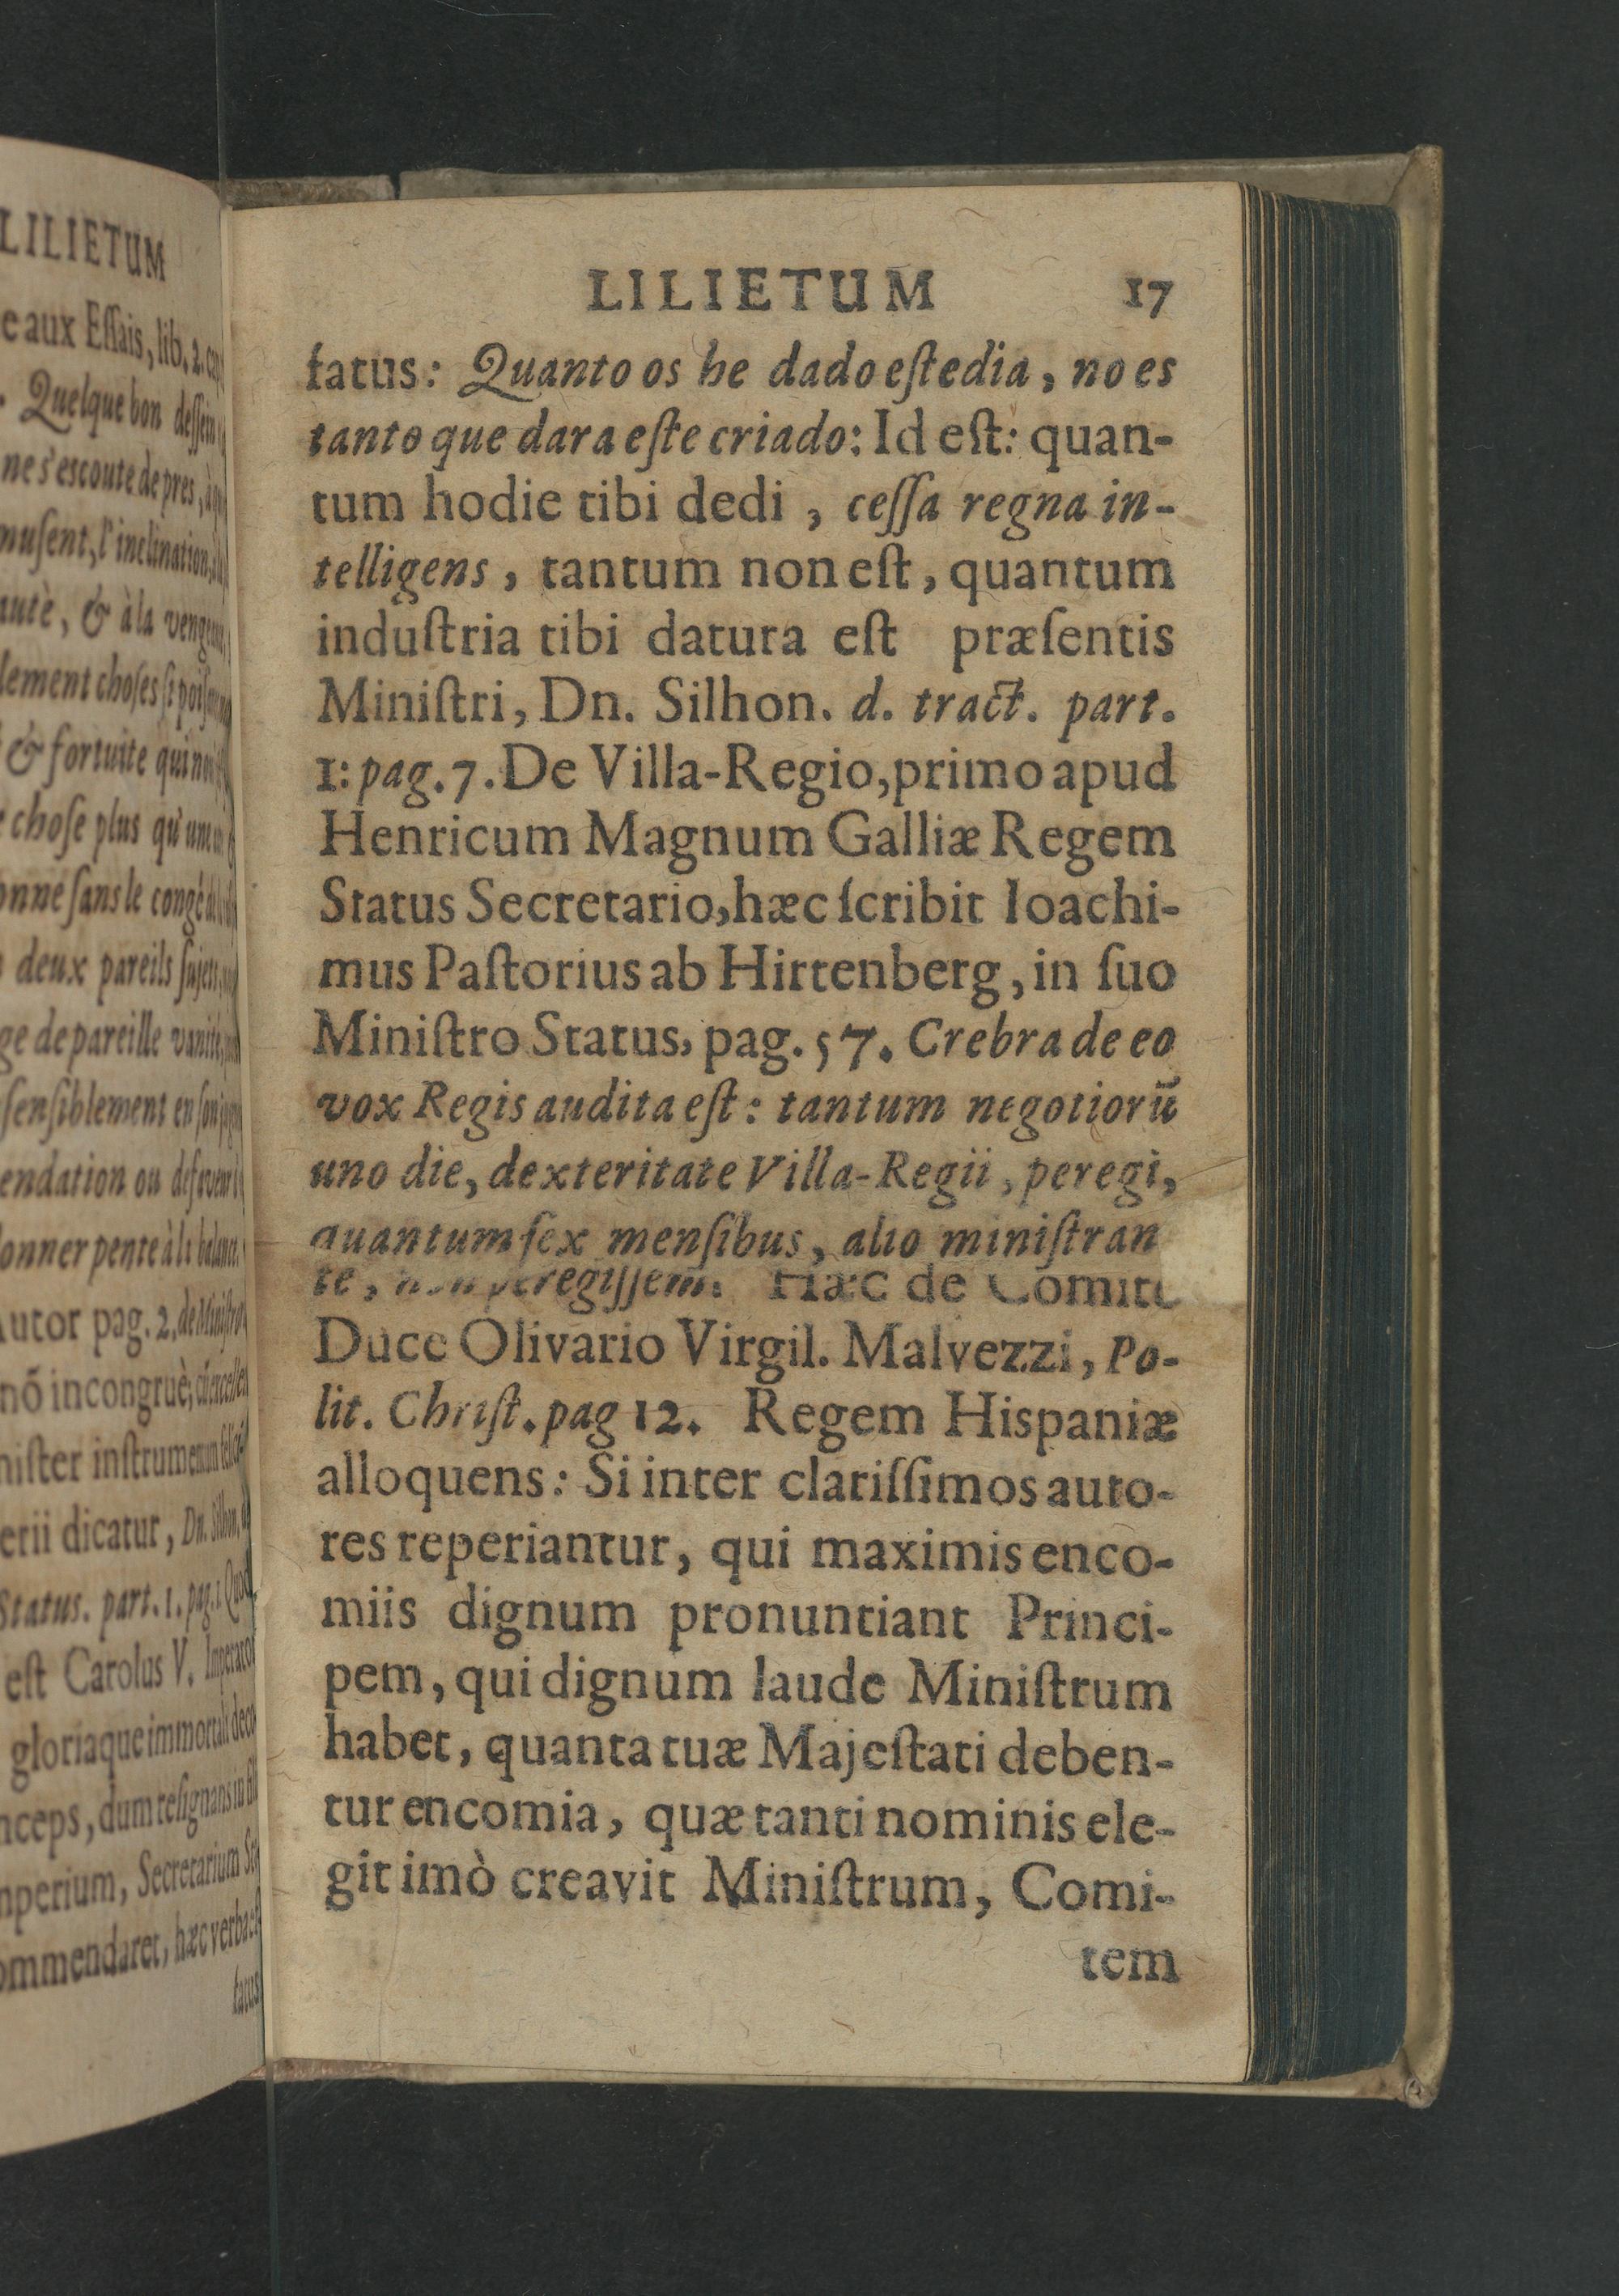 LILIETUM
e aux Eſſais, lib. 2. cap
. Quelque bon deſſein
ne s'escoute de pres, à
muſent, l'inclination,
auté, & à la
lement choſes ſi
& fortuite qui
choſe plus qu'une
onne ſans le congé
deux pareils ſujets,
ge de pareille vanité,
ſenſiblement en ſon
endation ou
onner pente à la balance.
Autor pag. 2. de Miniſtro
nō incongruè,
niſter inſtrumentum
erii dicatur, Dn. Silhon,
Status. part. 1. pag. 1. Quod
eſt Carolus V. Imperator
gloriaque immortali deco
nceps, dum reſignans in
mperium, Secretarium
ommendaret, hæc verba
tatus
LILIETUM 17
tatus: Quanto os he dado eſtedia, no es
tanto que dara eſte criado: Id eſt: quan-
tum hodie tibi dedi, ceſſa regna in-
telligens, tantum non eſt, quantum
induſtria tibi datura eſt præſentis
Miniſtri, Dn. Silhon. d. tract. part.
1: pag. 7. De Villa-Regio, primo apud
Henricum Magnum Galliæ Regem
Status Secretario, hæc ſcribit Ioachi-
mus Paſtorius ab Hirtenberg, in ſuo
Miniſtro Status, pag. 57. Crebra de eo
vox Regis audita eſt: tantum negotiorū
uno die, dexteritate Villa-Regii, peregi,
quantum ſex menſibus, alio miniſtran
te, non peregiſſem. Hæc de Comite
Duce Olivario Virgil. Malvezzi, Po-
lit. Chriſt. pag 12. Regem Hispaniæ
alloquens: Si inter clariſſimos auto-
res reperiantur, qui maximis enco-
miis dignum pronuntiant Princi-
pem, qui dignum laude Miniſtrum
habet, quanta tuæ Majeſtati deben-
tur encomia, quæ tanti nominis ele-
git imò creavit Miniſtrum, Comi-
tem